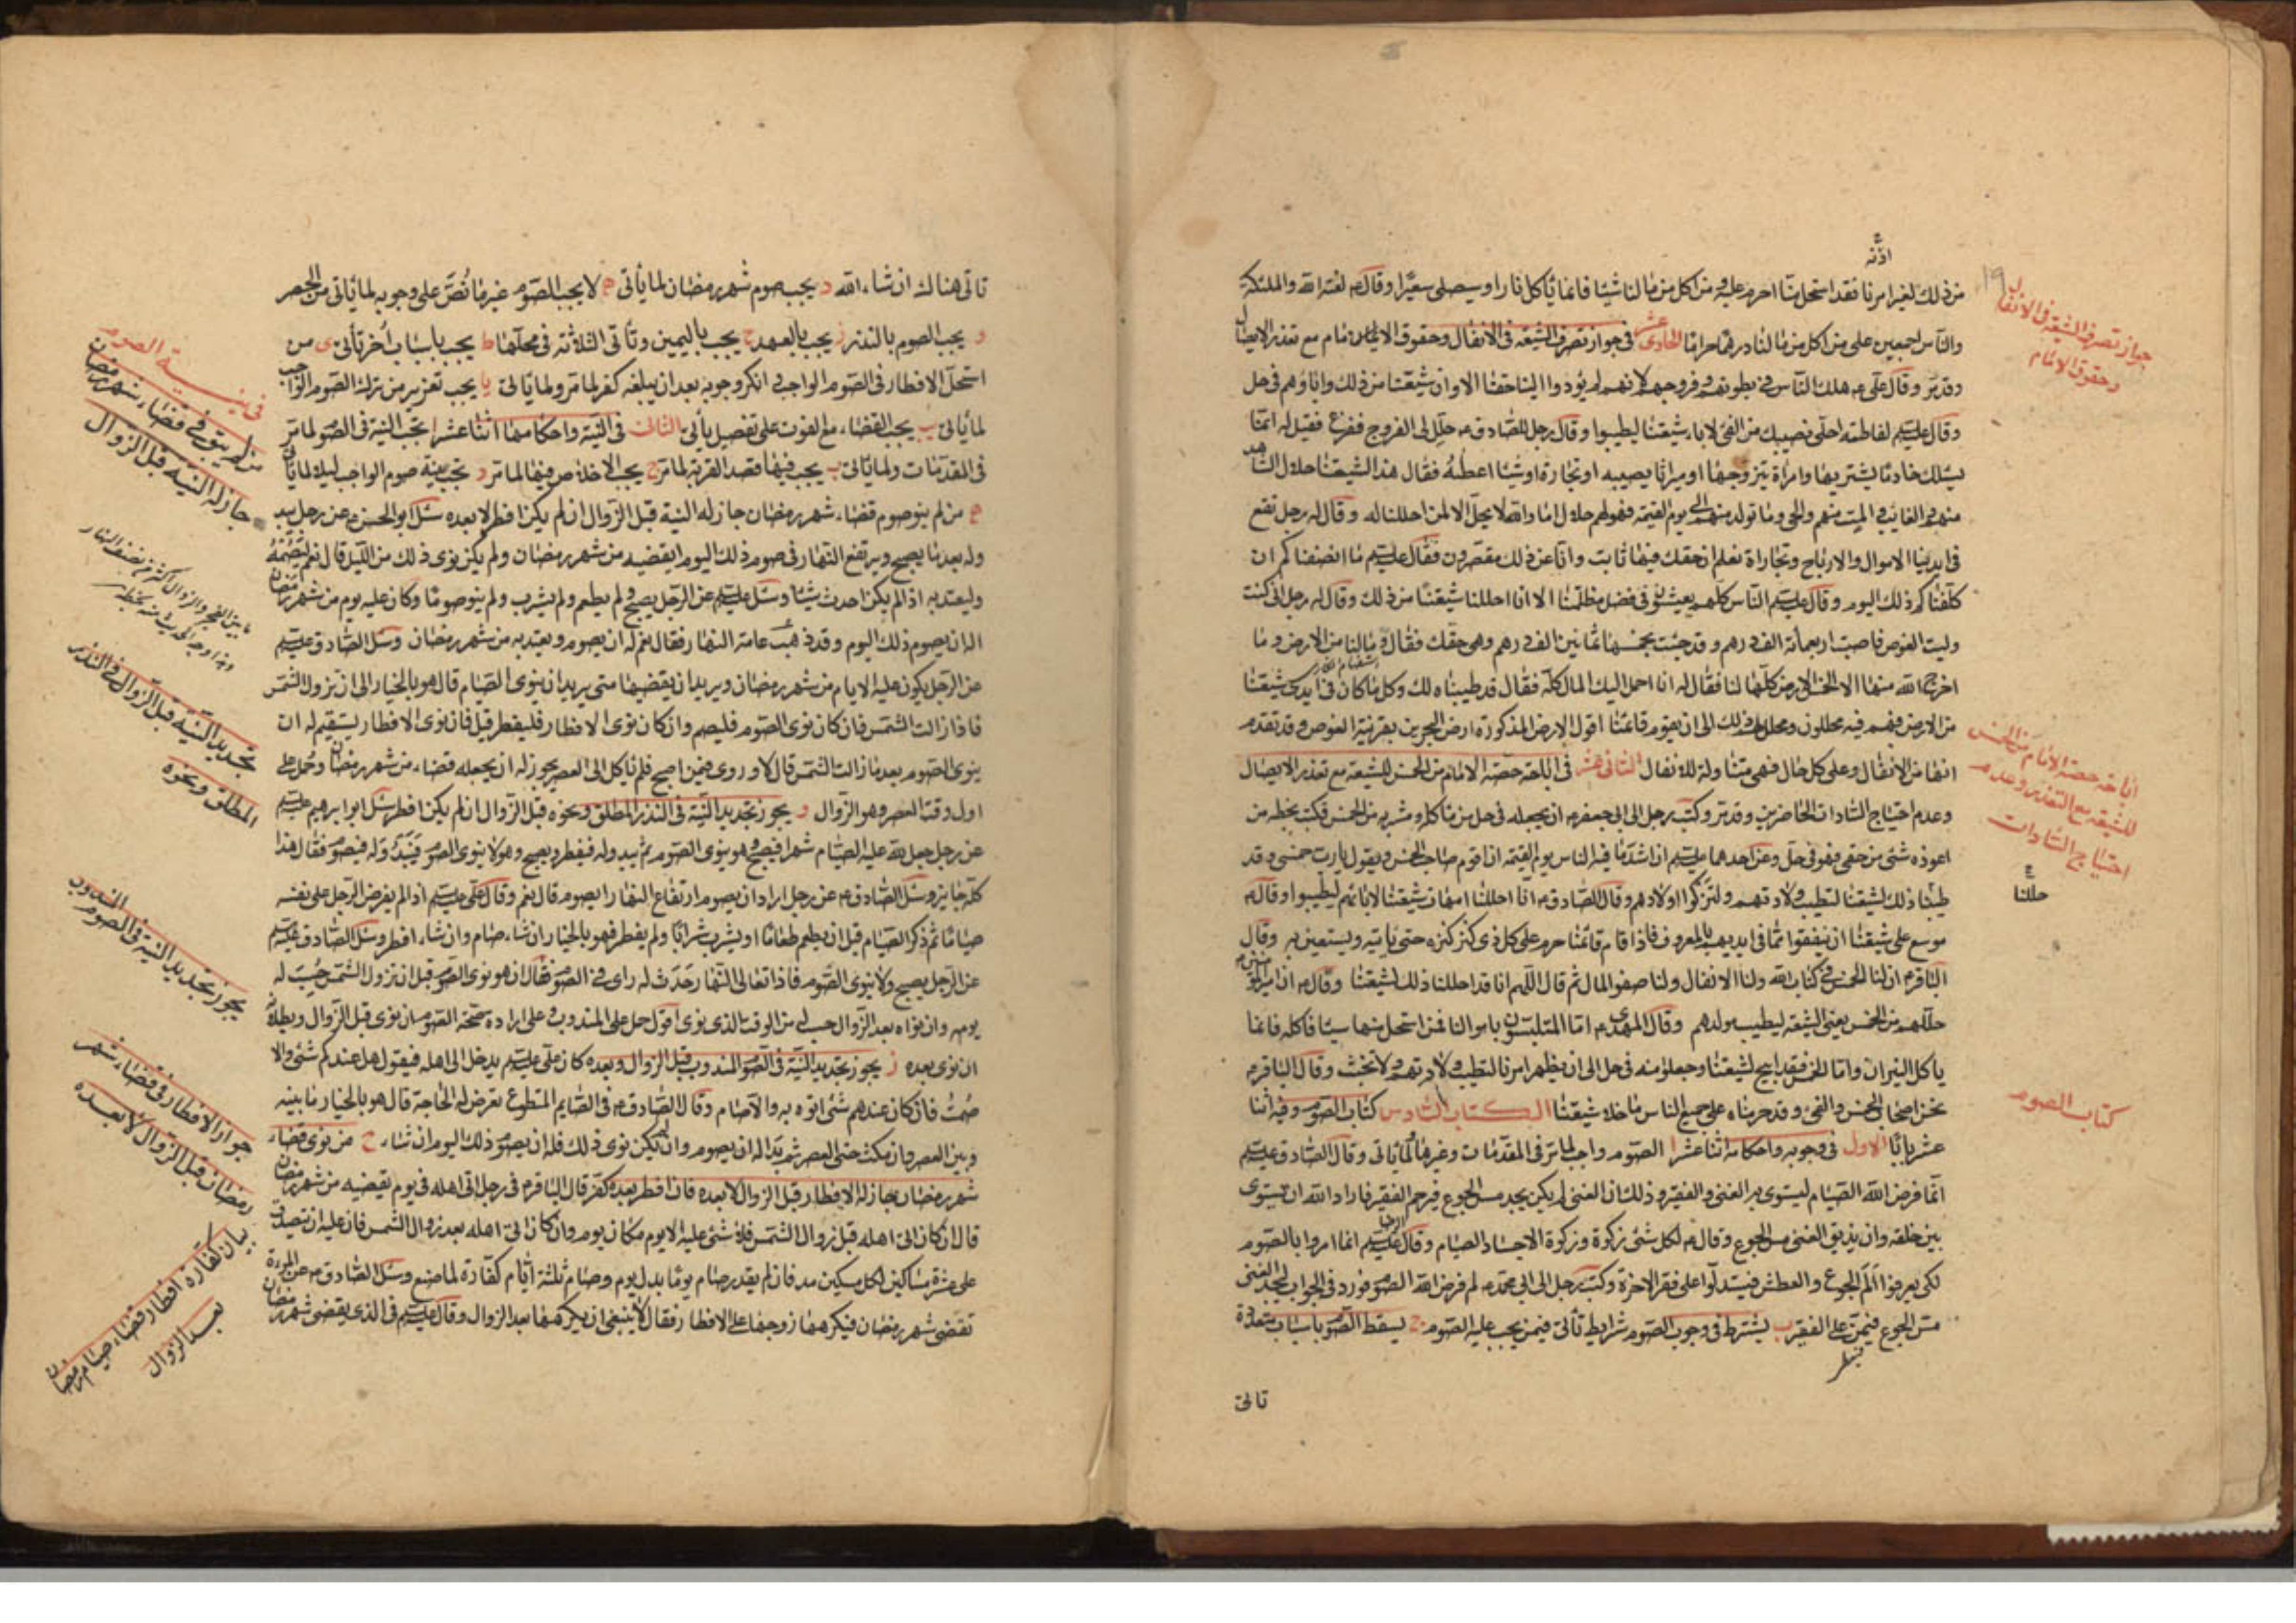 اذنه
من ذلك لغير امرنا فقد استحل منا ما حرم عليه ومن اكل من مالنا شيئا فانما ياكل نارا وسيصلى سعيرا وقال ع لعنة الله والملئكة
والناس اجمعين على من اكل من مالنا درهما حراما الحادى عشر فى جواز تصرف الشيعة فى الانفال وحقوق الامام مع تعذر الايصال
وقد مر وقال على ع هلك الناس فى بطونهم وفروجهم لانهم لم يؤدوا الينا حقنا الا وان شيعتنا من ذلك واباؤهم فى حل
وقال عليه السلم لفاطمة احلى نصيبك من الفئ لاباء شيعتنا ليطيبوا وقال رجل للصادق ع حلل لى الفروج ففزع فقيل له انما
يسئلك خادما يشتريها او امراة يتزوجها او ميراثا يصيبه او تجارة او شيئا اعطه فقال هذا لشيعتنا حلال الشاهد
منهم والغايب والميت منهم والحى وما تولد منهم الى يوم القيمة فهو لهم حلال اما والله لا يحل الا لمن احللنا له وقال له رجل تقع
فى ايدينا الاموال والارباح وتجارات نعلم ان حقك فيها ثابت وانا عن ذلك مقصرون فقال عليه السلم ما انصفناكم ان
كلفناكم ذلك اليوم وقال عليه السلم الناس كلهم يعيشون فى فضل مظلمتنا الا انا احللنا شيعتنا من ذلك وقال له رجل انى كنت
وليت الغوص فاصبت اربعمائة الف درهم وقد جئت بخمسها ثمانين الف درهم وهى حقك فقال وما لنا من الارض وما
اخرج الله منها الا الخمس الارض كلها لنا فقال له انا احمل اليك المال كله فقال قد طيبناه لك وكل ما كان فى ايدى شيعتنا
من الارض فهم فيه محللون ومحلل لهم ذلك الى ان يقوم قائمنا اقول الارض المذكورة ارض البحرين بقرينة الغوص وقد تقدم
انها من الانفال وعلى كل حال فهى متناولة للانفال الثانى عشر فى اباحة حصة الامام من الخمس للشيعة مع تعذر الايصال
وعدم احتياج السادات الحاضرين وقد مر وكتب رجل الى ابى جعفر ع ان يجعله فى حل من ماكله ومشربه من الخمس فكتب بخطه من
اعوذه شئ من حقى فهو فى حل وعن احدهما عليه السلم ان اشد ما فيه الناس يوم القيمة ان يقوم صاحب الخمس ويقول يا رب خمسى وقد
طيبنا ذلك لشيعتنا لتطيب ولادتهم ولتزكوا اولادهم وقال الصادق ع انا احللنا امهات شيعتنا لابائهم ليطيبوا وقال ع
موسع على شيعتنا ان ينفقوا مما فى ايديهم بالمعروف فاذا قام قائمنا حرم على كل ذى كنز كنزه حتى ياتيه ويستعين به وقال
الباقر ع ان لنا الخمس فى كتاب الله ولنا الانفال ولنا صفو المال ثم قال اللهم انا قد احللنا ذلك لشيعتنا وقال ع ان امير المؤمنين
حللهم من الخمس يعنى الشيعة ليطيب مولدهم وقال المهدى ع اما المتلبسون باموالنا فمن استحل منها شيئا فاكله فانما
ياكل النيران واما الخمس فقد ابيح لشيعتنا وجعلوا منه فى حل الى ان يظهر امرنا لتطيب ولادتهم ولا تخبث وقال الباقر ع
نحن اصحاب الخمس والفئ وقد حرمناه على جميع الناس ما خلا شيعتنا الكتاب السادس كتاب الصوم وفيه اثنا
عشر بابا الاول فى وجوبه واحكامه اثنا عشر ا الصوم واجب لما مر فى المقدمات وغيرها ولما ياتى وقال الصادق عليه السلم
انما فرض الله الصيام ليستوى به الغنى والفقير وذلك ان الغنى لم يكن يجد مس الجوع فيرحم الفقير فاراد الله ان يستوى
بين خلقه وان يذيق الغنى مس الجوع وقال ع لكل شئ زكوة وزكوة الاجساد الصيام وقال الرضا عليه السلم انما امروا بالصوم
لكى يعرفوا الم الجوع والعطش فيستدلوا على فقر الاخرة وكتب رجل الى ابى محمد ع لم فرض الله الصوم فورد فى الجواب ليجد الغنى
مس الجوع فيمن على الفقير ب يشترط فى وجوب الصوم شرايط تاتى فيمن يجب عليه الصوم ج يسقط الصوم باسباب متعددة
تاتى
جواز تصرف الشيعة فى الانفال
وحقوق الامام
اباحة حصة الامام من الخمس
للشيعة مع التعذر وعدم
احتياج السادات
حللنا
كتاب الصوم
تاتى هناك ان شاء الله د يجب صوم شهر رمضان لما ياتى ه لا يجب الصوم غير ما نص على وجوبه لما ياتى من الحصر
و يجب الصوم بالنذر ز يجب بالعهد ح يجب باليمين وتاتى الثلاثة فى محلها ط يجب باسباب اخر تاتى ى من
استحل الافطار فى الصوم الواجب او انكر وجوبه بعد ان يبلغه كفر لما مر ولما ياتى يا يجب تعزير من ترك الصوم الواجب
لما ياتى يب يجب القضاء مع الفوت على تفصيل ياتى الثانى فى النية واحكامها اثنا عشر ا تجب النية فى الصوم لما مر
فى المقدمات ولما ياتى ب يجب فيها قصد القربة لما مر ج يجب الاخلاص فيها لما مر د تجب نية صوم الواجب ليلا لما ياتى
ه من لم ينو صوم قضاء شهر رمضان جاز له النية قبل الزوال ان لم يكن افطر لا بعده سئل ابو الحسن ع عن رجل يبدو
له بعد ما يصبح ويرتفع النهار فى صوم ذلك اليوم ليقضيه من شهر رمضان ولم يكن نوى ذلك من الليل قال نعم ليصمه
وليعتد به اذا لم يكن احدث شيئا وسئل عليه السلم عن الرجل يصبح ولم يطعم ولم يشرب ولم ينو صوما وكان عليه يوم من شهر رمضان
اله ان يصوم ذلك اليوم وقد ذهب عامة النهار فقال نعم له ان يصوم ويعتد به من شهر رمضان وسئل الصادق عليه السلم
عن الرجل يكون عليه الايام من شهر رمضان ويريد ان يقضيها متى يريد ان ينوى الصيام قال هو بالخيار الى ان تزول الشمس
فاذا زالت الشمس فان كان نوى الصوم فليصم وان كان نوى الافطار فليفطر قيل فان نوى الافطار يستقيم له ان
ينوى الصوم بعد ما زالت الشمس قال لا وروى فيمن اصبح فلم ياكل الى العصر يجوز له ان يجعله قضاء من شهر رمضان وحمل على
اول وقت العصر وهو الزوال و يجوز تجديد النية فى النذر المطلق ونحوه قبل الزوال ان لم يكن افطر سئل ابو ابراهيم عليه السلم
عن رجل جعل لله عليه الصيام شهرا فيصبح وهو ينوى الصوم ثم يبدو له فيفطر ويصبح وهو لا ينوى الصوم فيبدو له فيصوم فقال هذا
كله جايز وسئل الصادق ع عن رجل اراد ان يصوم ارتفاع النهار ايصوم قال نعم وقال على عليه السلم اذا لم يفرض الرجل على نفسه
صياما ثم ذكر الصيام قبل ان يطعم طعاما او يشرب شرابا ولم يفطر فهو بالخيار ان شاء صام وان شاء افطر وسئل الصادق عليه السلم
عن الرجل يصبح ولا ينوى الصوم فاذا تعالى النهار حدث له راى فى الصوم فقال ان هو نوى الصوم قبل ان تزول الشمس حسب له
يومه وان نواه بعد الزوال حسب له من الوقت الذى نوى اقول حمل على المندوب وعلى ارادة صحة الصوم ان نوى قبل الزوال وبطلانه
ان نوى بعده ز يجوز تجديد النية فى الصوم المندوب قبل الزوال وبعده كان على عليه السلم يدخل الى اهله فيقول هل عندكم شئ والا
صمت فان كان عندهم شئ اتوه به والا صام وقال الصادق ع فى الصايم المتطوع تعرض له الحاجة قال هو بالخيار ما بينه
وبين العصر وان مكث حتى العصر ثم بدا له ان يصوم وان لم يكن نوى ذلك فله ان يصوم ذلك اليوم ان شاء ح من نوى قضاء
شهر رمضان جاز له الافطار قبل الزوال لا بعده فان افطر بعده كفر قال الباقر ع فى رجل اتى اهله فى يوم يقضيه من شهر رمضان
قال ان كان اتى اهله قبل زوال الشمس فلا شئ عليه الا يوم مكان يوم وان كان اتى اهله بعد زوال الشمس فان عليه ان يتصدق
على عشرة مساكين لكل مسكين مد فان لم يقدر صام يوما بدل يوم وصام ثلثة ايام كفارة لما صنع وسئل الصادق ع عن المرءة
تقضى شهر رمضان فيكرهها زوجها على الافطار فقال لا ينبغى ان يكرهها بعد الزوال وقال عليه السلم فى الذى يقضى شهر رمضان
فى نية الصوم
من لم ينو فى قضاء شهر رمضان
جاز له النية قبل الزوال
تجديد النية قبل الزوال فى النذر
المطلق ونحوه
يجوز تجديد النية فى الصوم المندوب
جواز الافطار فى قضاء شهر
رمضان قبل الزوال لا بعده
بيان كفارة افطار قضاء صيام رمضان
بعد الزوال